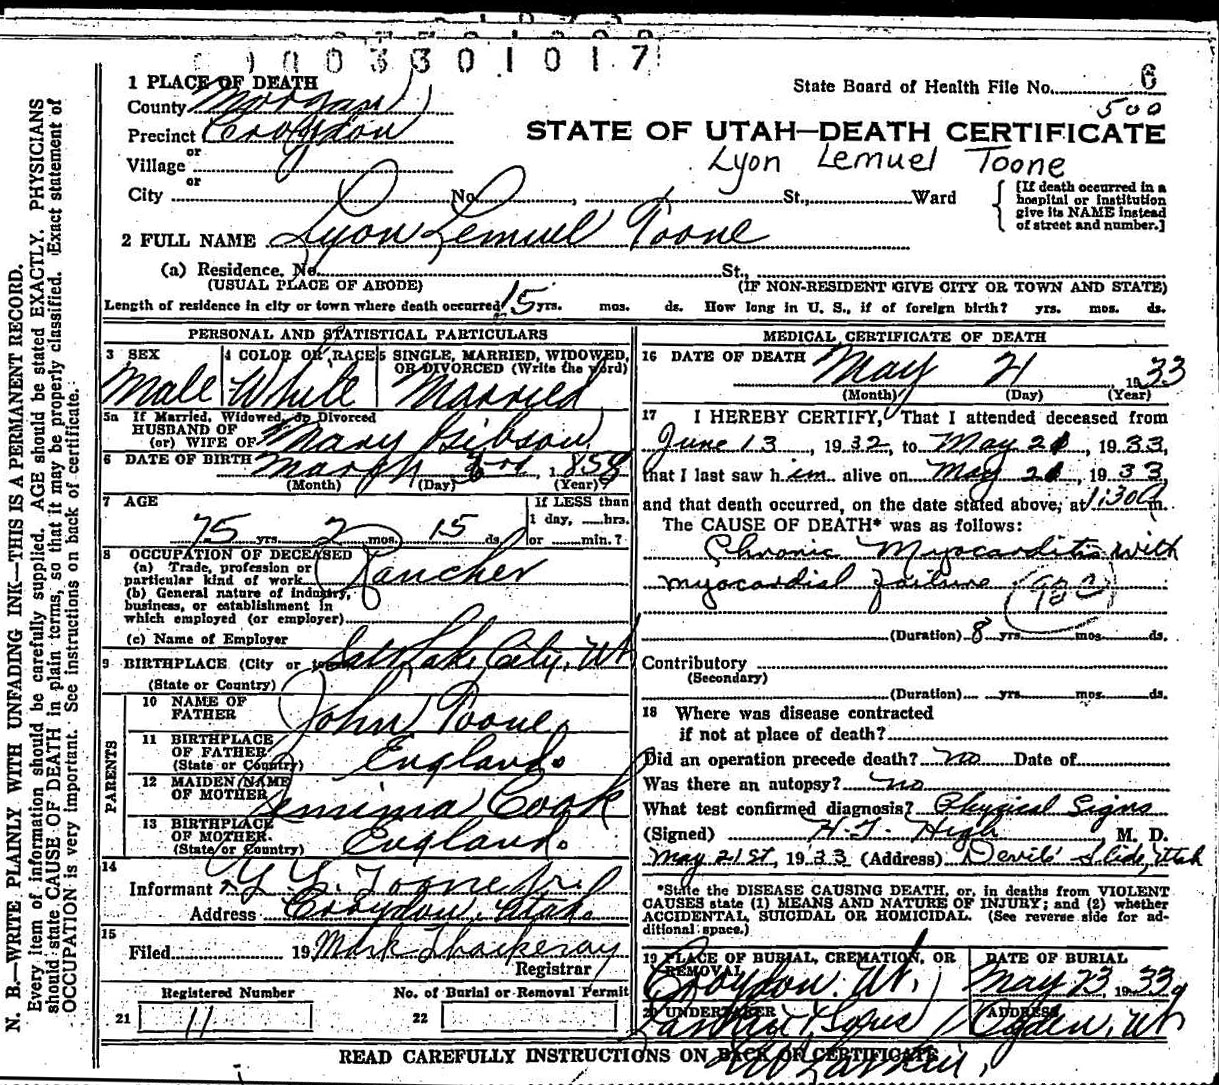 0 0 3 3 0 1 0 1 7
1 PLACE OF DEATH
State Board of Health File No. 6
500
County Morgan
Precinct Croydon
STATE OF UTAH—DEATH CERTIFICATE
or
Village
Lyon Lemuel Toone
or
City No. St., Ward
[If death occurred in a
hospital or institution
give its NAME instead
of street and number.]
2 FULL NAME Lyon Lemuel Toone
(a) Residence, No. St.,
(USUAL PLACE OF ABODE) (IF NON-RESIDENT GIVE CITY OR TOWN AND STATE)
Length of residence in city or town where death occurred 15 yrs. mos. ds. How long in U. S., if of foreign birth? yrs. mos. ds.
PERSONAL AND STATISTICAL PARTICULARS
3 SEX
Male
4 COLOR OR RACE
White
5 SINGLE, MARRIED, WIDOWED,
OR DIVORCED (Write the word)
Married
5a If Married, Widowed, or Divorced
HUSBAND OF
(or) WIFE OF Mary Gibson
6 DATE OF BIRTH March rd, 1858
(Month) (Day) (Year)
7 AGE
If LESS than
1 day, hrs.
75 yrs. 2 mos. 15 ds. or min.?
8 OCCUPATION OF DECEASED
(a) Trade, profession or
particular kind of work Rancher
(b) General nature of industry,
business, or establishment in
which employed (or employer)
(c) Name of Employer
9 BIRTHPLACE (City or town) Salt Lake City, Ut
(State or Country)
PARENTS
10 NAME OF
FATHER John Toone
11 BIRTHPLACE
OF FATHER
(State or Country) England.
12 MAIDEN NAME
OF MOTHER Jemima Cook
13 BIRTHPLACE
OF MOTHER
(State or Country) England.
14
Informant L. Toone Jr.
Address Croydon, Utah.
15
Filed 19 Mark Thackeray
Registrar
Registered Number
21 11
No. of Burial or Removal Permit
22
MEDICAL CERTIFICATE OF DEATH
16 DATE OF DEATH May 21, 1933
(Month) (Day) (Year)
17 I HEREBY CERTIFY, That I attended deceased from
June 13, 1932, to May 21, 1933,
that I last saw him alive on May 21, 1933
and that death occurred, on the date stated above, at 1:30 A m.
The CAUSE OF DEATH* was as follows:
Chronic Myocarditis with
myocardial failure
(Duration) 8 yrs. mos. ds.
Contributory
(Secondary)
(Duration) yrs. mos. ds.
18 Where was disease contracted
if not at place of death?
Did an operation precede death? no Date of
Was there an autopsy? no
What test confirmed diagnosis? Physical Signs
(Signed) High M. D.
May 21st, 1933 (Address) Devils Slide, Utah
*State the DISEASE CAUSING DEATH, or, in deaths from VIOLENT
CAUSES state (1) MEANS AND NATURE OF INJURY; and (2) whether
ACCIDENTAL, SUICIDAL OR HOMICIDAL. (See reverse side for ad-
ditional space.)
19 PLACE OF BURIAL, CREMATION, OR
REMOVAL
Croydon, Ut.
DATE OF BURIAL
May 23, 1933
20 UNDERTAKER
Larkin & Sons
ADDRESS
Ogden, Ut
READ CAREFULLY INSTRUCTIONS ON BACK OF CERTIFICATE
Larkin
N. B.—WRITE PLAINLY WITH UNFADING INK—THIS IS A PERMANENT RECORD.
Every item of information should be carefully supplied. AGE should be stated EXACTLY. PHYSICIANS
should state CAUSE OF DEATH in plain terms, so that it may be properly classified. Exact statement of
OCCUPATION is very important. See instructions on back of certificate.